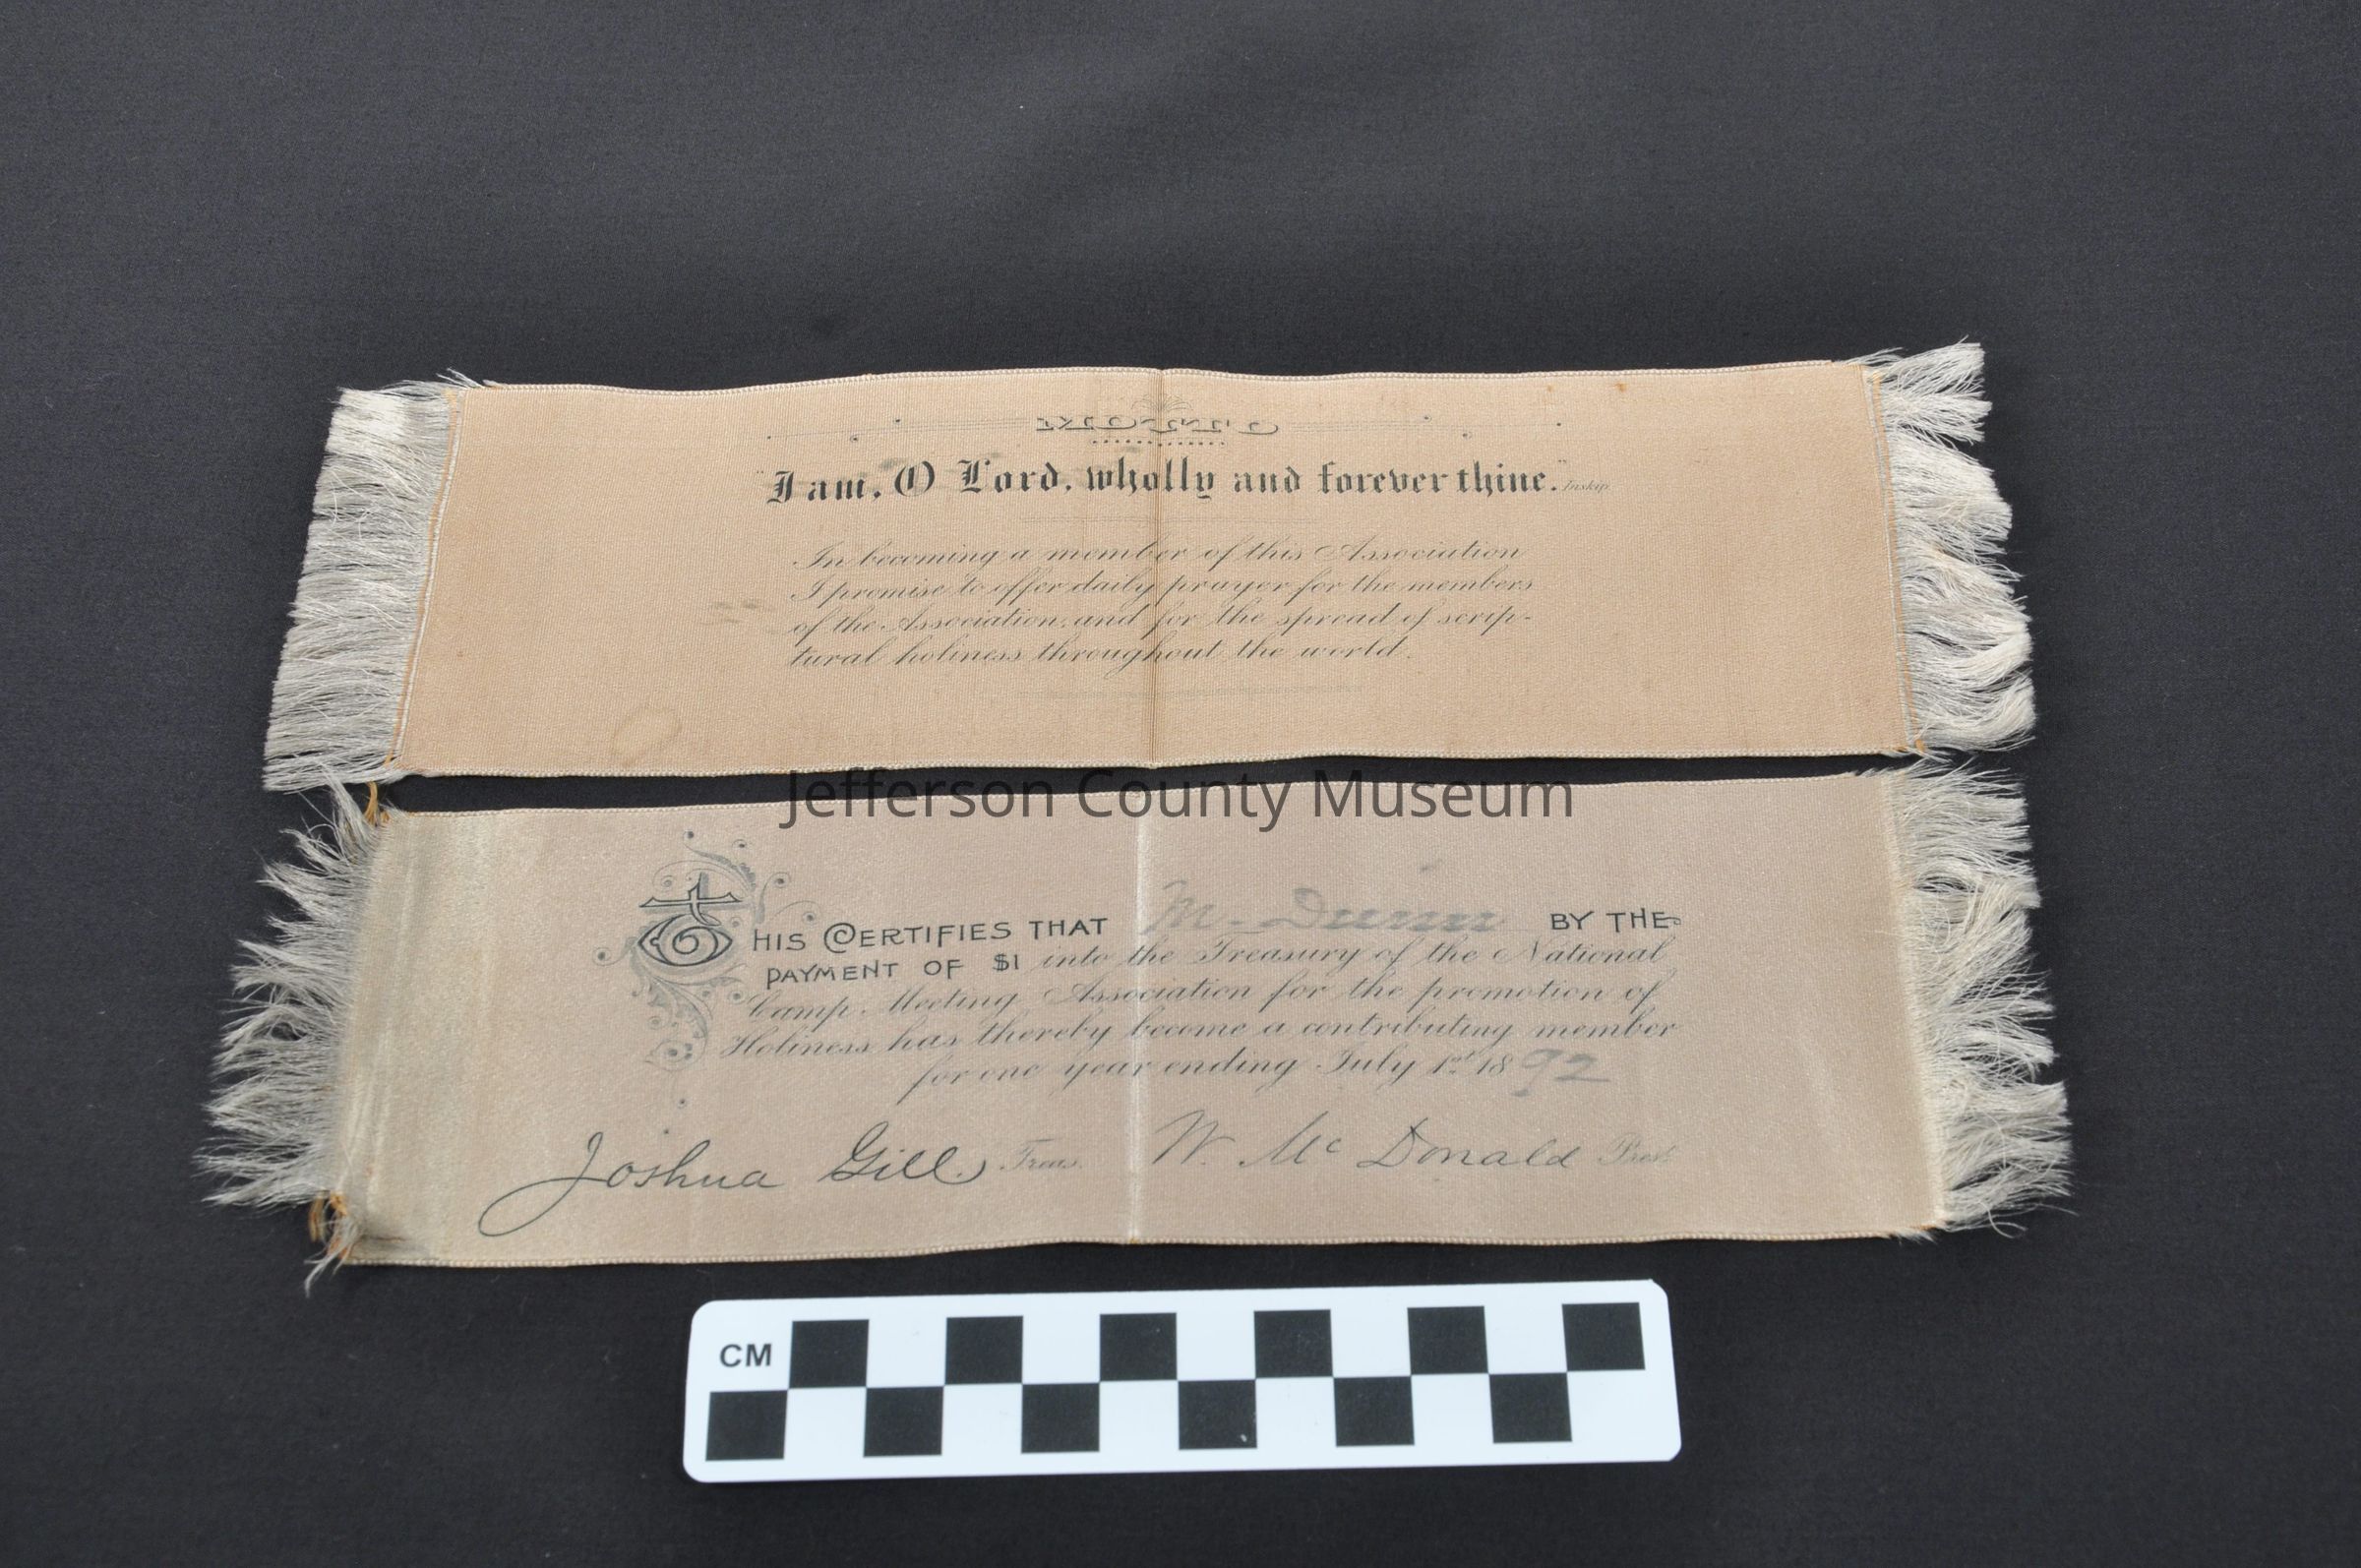 MOTTO
"I am, O Lord, wholly and forever thine." Inskip
In becoming a member of this Association
I promise to offer daily prayer for the members
of the Association, and for the spread of scrip-
tural holiness throughout the world.
Jefferson County Museum
THIS CERTIFIES THAT M. Dunn BY THE
PAYMENT OF $1 into the Treasury of the National
Camp Meeting Association for the promotion of
Holiness has thereby become a contributing member
for one year ending July 1st 1892
Joshua Gill Treas. W. McDonald Prest.
CM